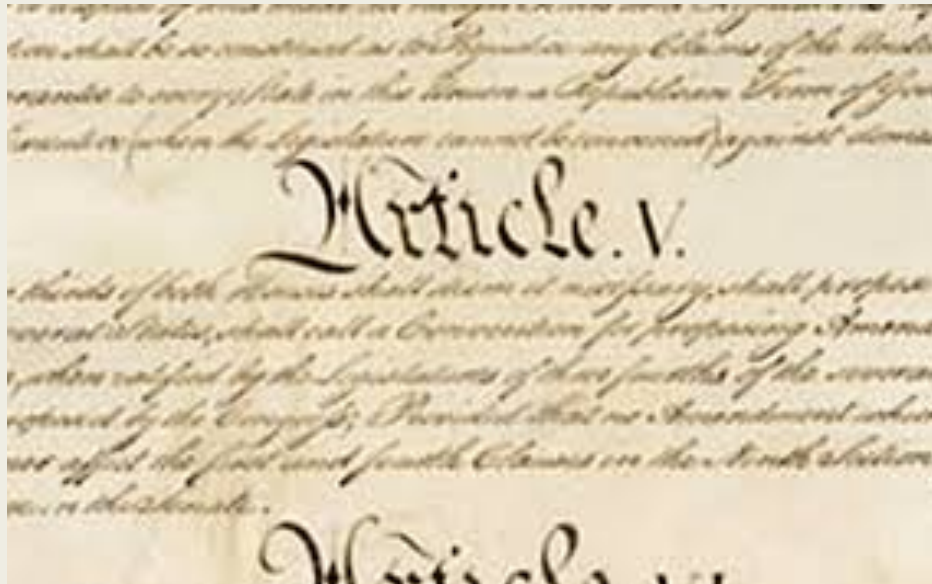 tion shall be so construed as to Prejudice any Claims of the Unite
rantee to every State in this Union a Republican Form of Gov
Executive (when the Legislature cannot be convened) against domes
Article. V.
thirds of both Houses shall deem it necessary, shall propose
several States, shall call a Convention for proposing Amend
, when ratified by the Legislatures of three fourths of the several
proposed by the Congress; Provided that no Amendment which
ner affect the first and fourth Clauses in the Ninth Section
in the Senate.
Article. VI.